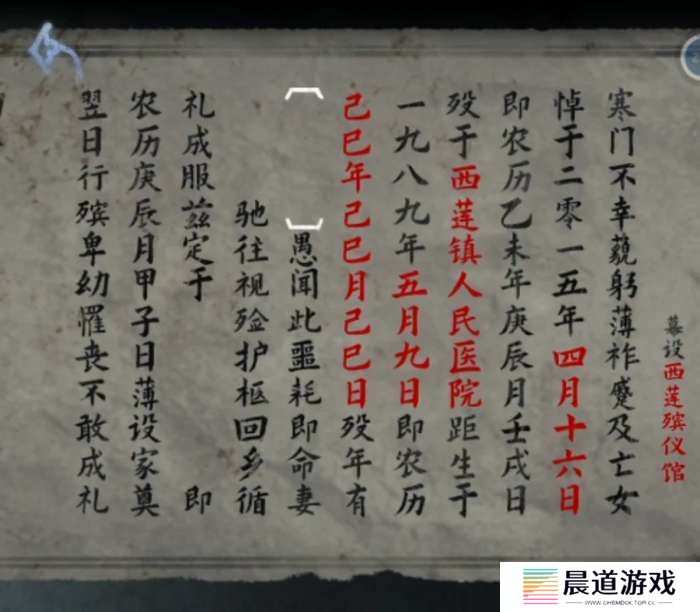 幕设西莲殡仪馆
寒门不幸藐躬薄祚蹙及亡女
悼于二零一五年四月十六日
即农历乙未年庚辰月壬戌日
殁于西莲镇人民医院距生于
一九八九年五月九日即农历
己巳年己巳月己巳日殁年有
愚闻此噩耗即命妻
驰往视殓护柩回乡循
礼成服兹定于 即
农历庚辰月甲子日薄设家奠
翌日行殡卑幼罹丧不敢成礼
晨道游戏
WWW.CHEMDOKTOR.CC